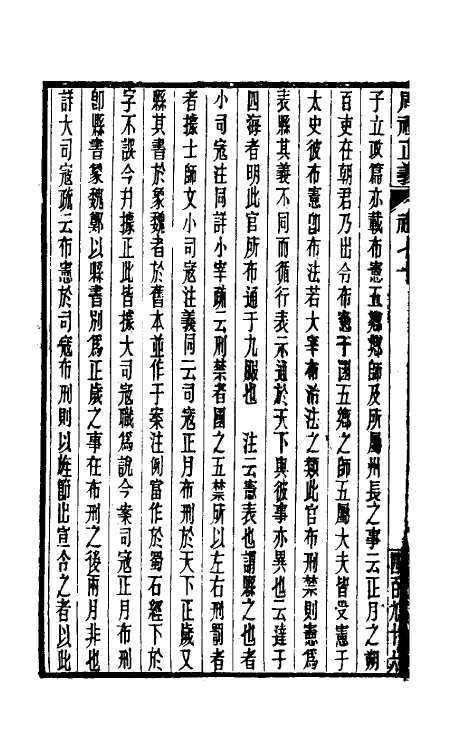 周禮正義
禮七十
子立政篇亦載布憲五鄉鄉師及所屬州長之事云正月之朔
百吏在朝君乃出令布憲于國五鄉之師五屬大夫皆受憲于
太史彼布憲卽布法若大宰布治法之類此官布刑禁則憲爲
表縣其義不同而循行表示通於天下與彼事亦異也云達于
四海者明此官所布通于九服也　注云憲表也謂縣之也者
小司寇注同詳小宰疏云刑禁者國之五禁所以左右刑罰者
者據士師文小司寇注義同云司寇正月布刑於天下正歲又
縣其書於象魏者於舊本並作于案注例當作於蜀石經下於
字不誤今幷據正此皆據大司寇職爲說今案司寇正月布刑
卽縣書象魏鄭以縣書別爲正歲之事在布刑之後兩月非也
詳大司寇疏云布憲於司寇布刑則以旌節出宣令之者以此